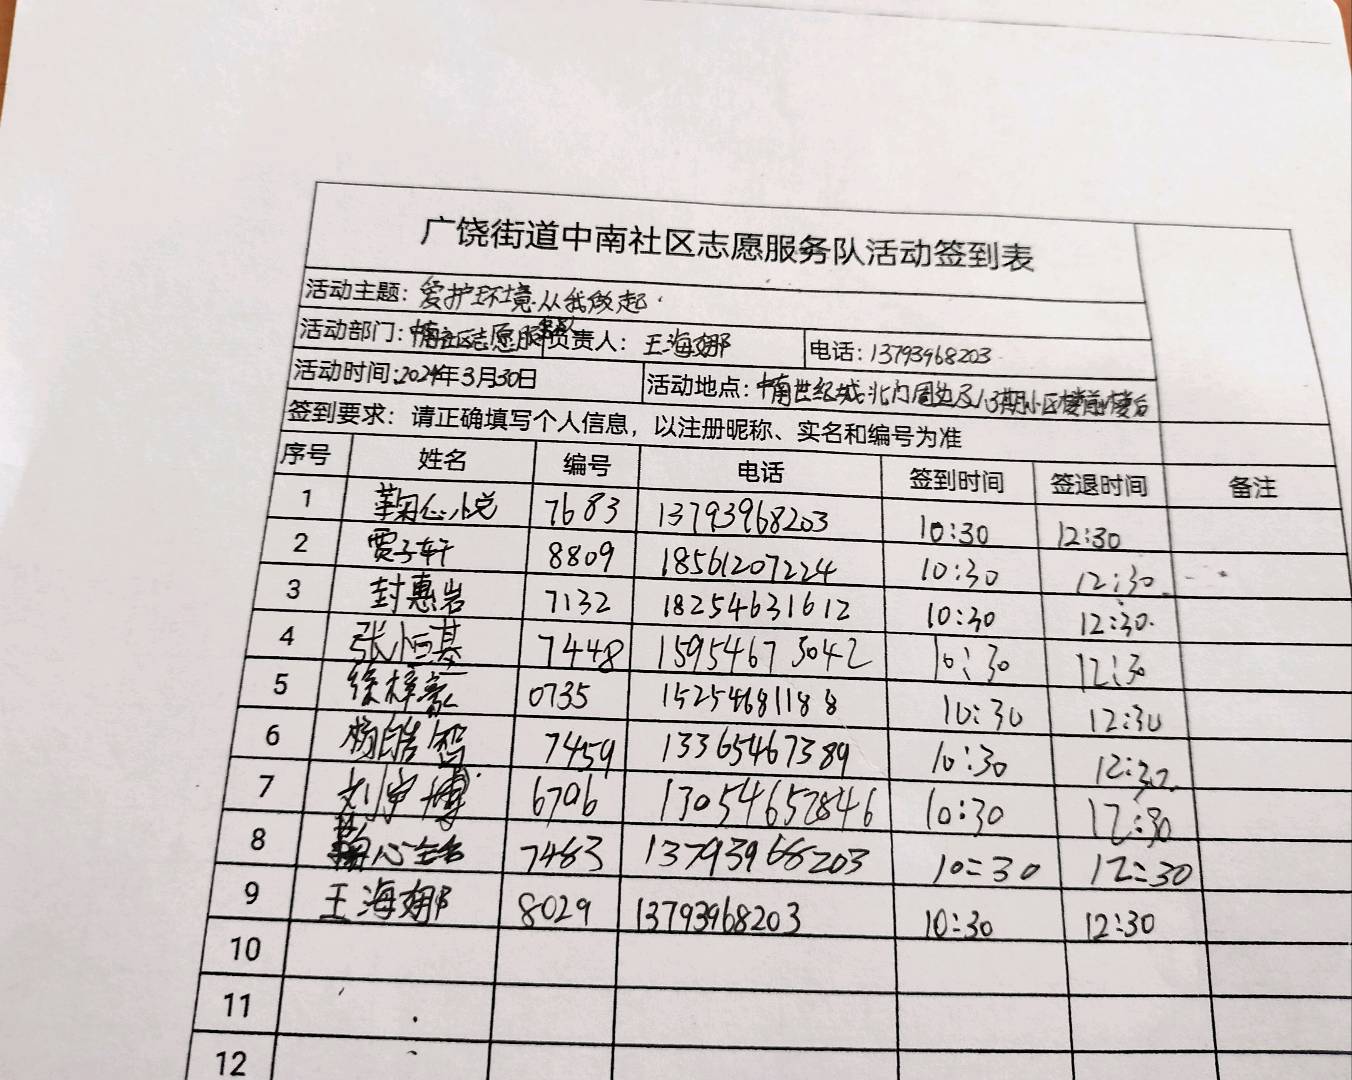 广饶街道中南社区志愿服务队活动签到表
活动主题：爱护环境.从我做起.
活动部门：中南社区志愿服务队 负责人：王海娜 电话：13793968203
活动时间：2024年3月30日 活动地点：中南世纪城北门周边及1.3期小区楼前楼后
签到要求：请正确填写个人信息，以注册昵称、实名和编号为准
序号 姓名 编号 电话 签到时间 签退时间 备注
1 鞠心悦 7683 13793968203 10:30 12:30
2 贾子轩 8809 18561207224 10:30 12:30
3 封惠岩 7132 18254631612 10:30 12:30
4 张恒基 7448 15954673042 10:30 12:30
5 徐梓豪 0735 15254681188 10:30 12:30
6 杨皓智 7459 13365467389 10:30 12:30
7 刘宇博 6706 13054657846 10:30 12:30
8 鞠心 7483 13793968203 10:30 12:30
9 王海娜 8029 13793968203 10:30 12:30
10
11
12